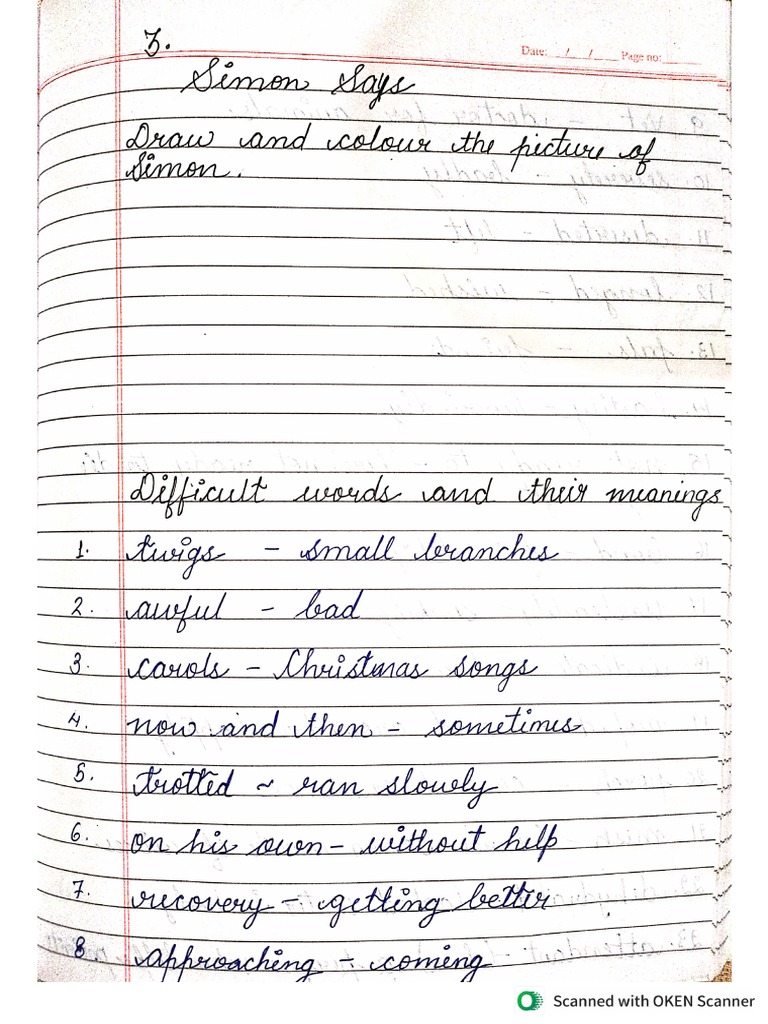 3.
Date: __/__/__ Page no:
Simon Says
Draw and colour the picture of
Simon.
Difficult words and their meanings
1. twigs - small branches
2. awful - bad
3. carols - Christmas songs
4. now and then - sometimes
5. trotted ~ ran slowly
6. on his own - without help
7. recovery - getting better
8 approaching - coming
Scanned with OKEN Scanner